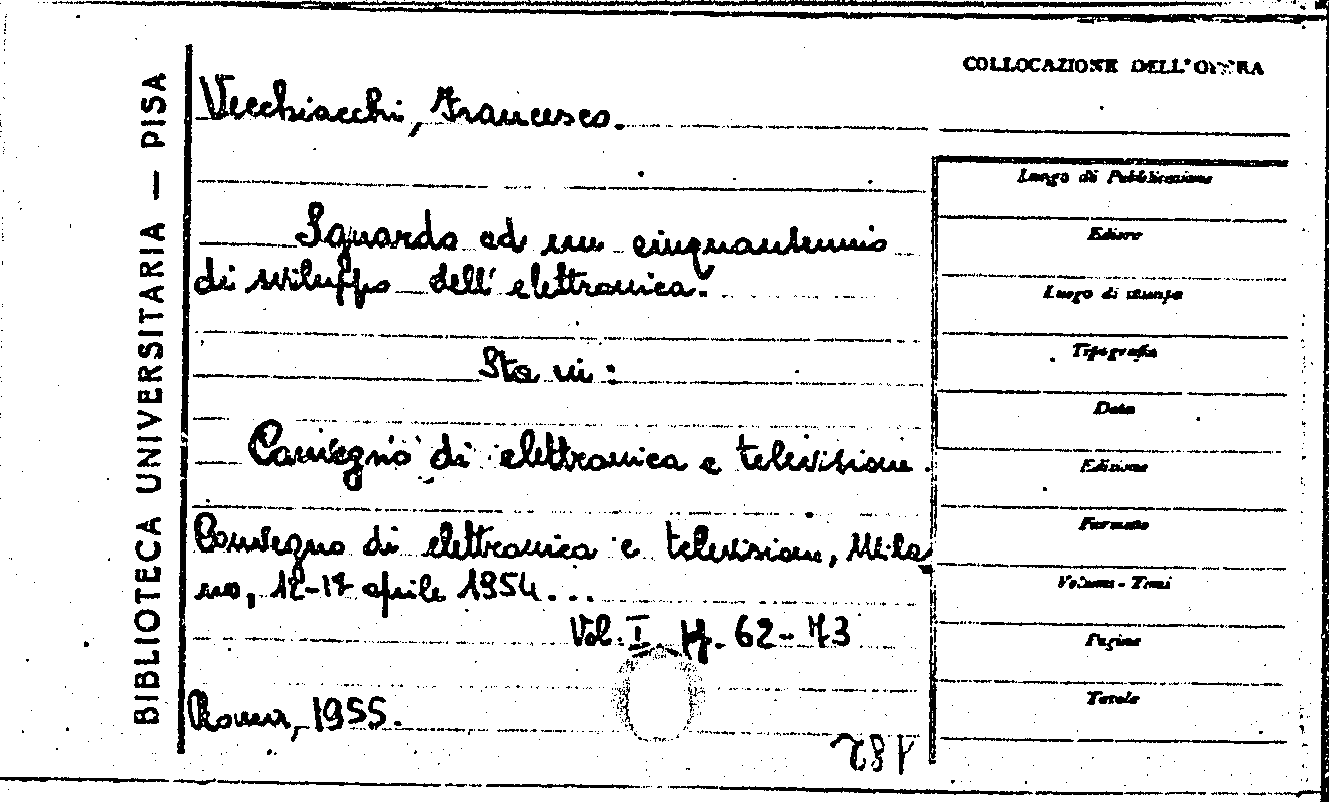 BIBLIOTECA UNIVERSITARIA — PISA
Vecchiacchi, Francesco.
Sguardo ad un cinquantennio
di sviluppo dell'elettronica.
Sta in:
Convegno di elettronica e televisione.
Convegno di elettronica e televisione, Mila
no, 12-17 aprile 1954...
Vol. I pp. 62-73
Roma, 1955.
COLLOCAZIONE DELL'OPERA
Luogo di Pubblicazione
Editore
Luogo di stampa
Tipografia
Data
Edizione
Formato
Volumi - Tomi
Pagine
Tavole